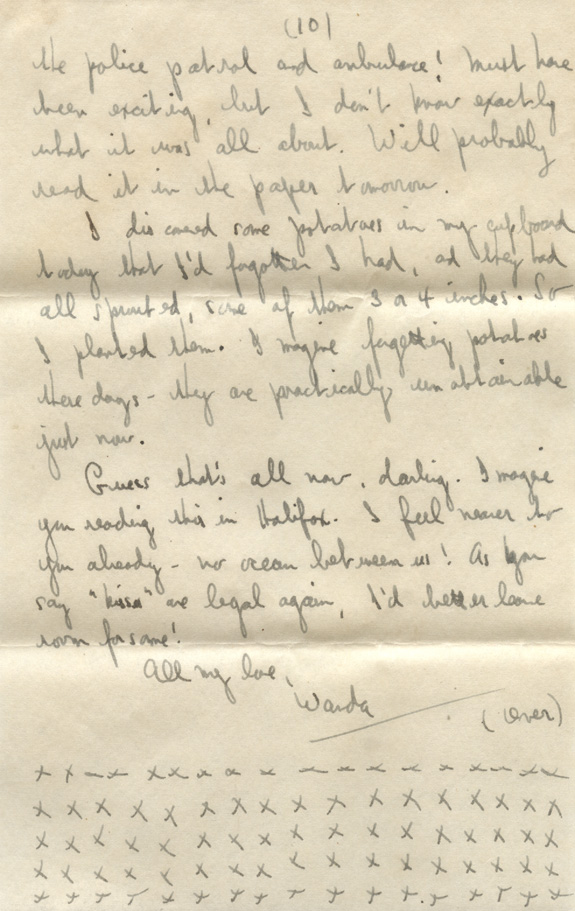 (10)
the police patrol and ambulance! Must have
been exciting, but I don't know exactly
what it was all about. Will probably
read it in the paper tomorrow.
I discovered some potatoes in my cupboard
today that I'd forgotten I had, and they had
all sprouted, some of them 3 or 4 inches. So
I planted them. Imagine forgetting potatoes
these days - they are practically unobtainable
just now.
Guess that's all now, darling. I imagine
you reading this in Halifax. I feel nearer to
you already - no ocean between us! As you
say "kisses" are legal again, I'd better leave
room for some!
All my love,
Wanda
(over)
x x x x x x x x x x x x x x x x x x
x x x x x x x x x x x x x x x x x
x x x x x x x x x x x x x x x x x
x x x x x x x x x x x x x x x x x
x x x x x x x x x x x x x x x x x